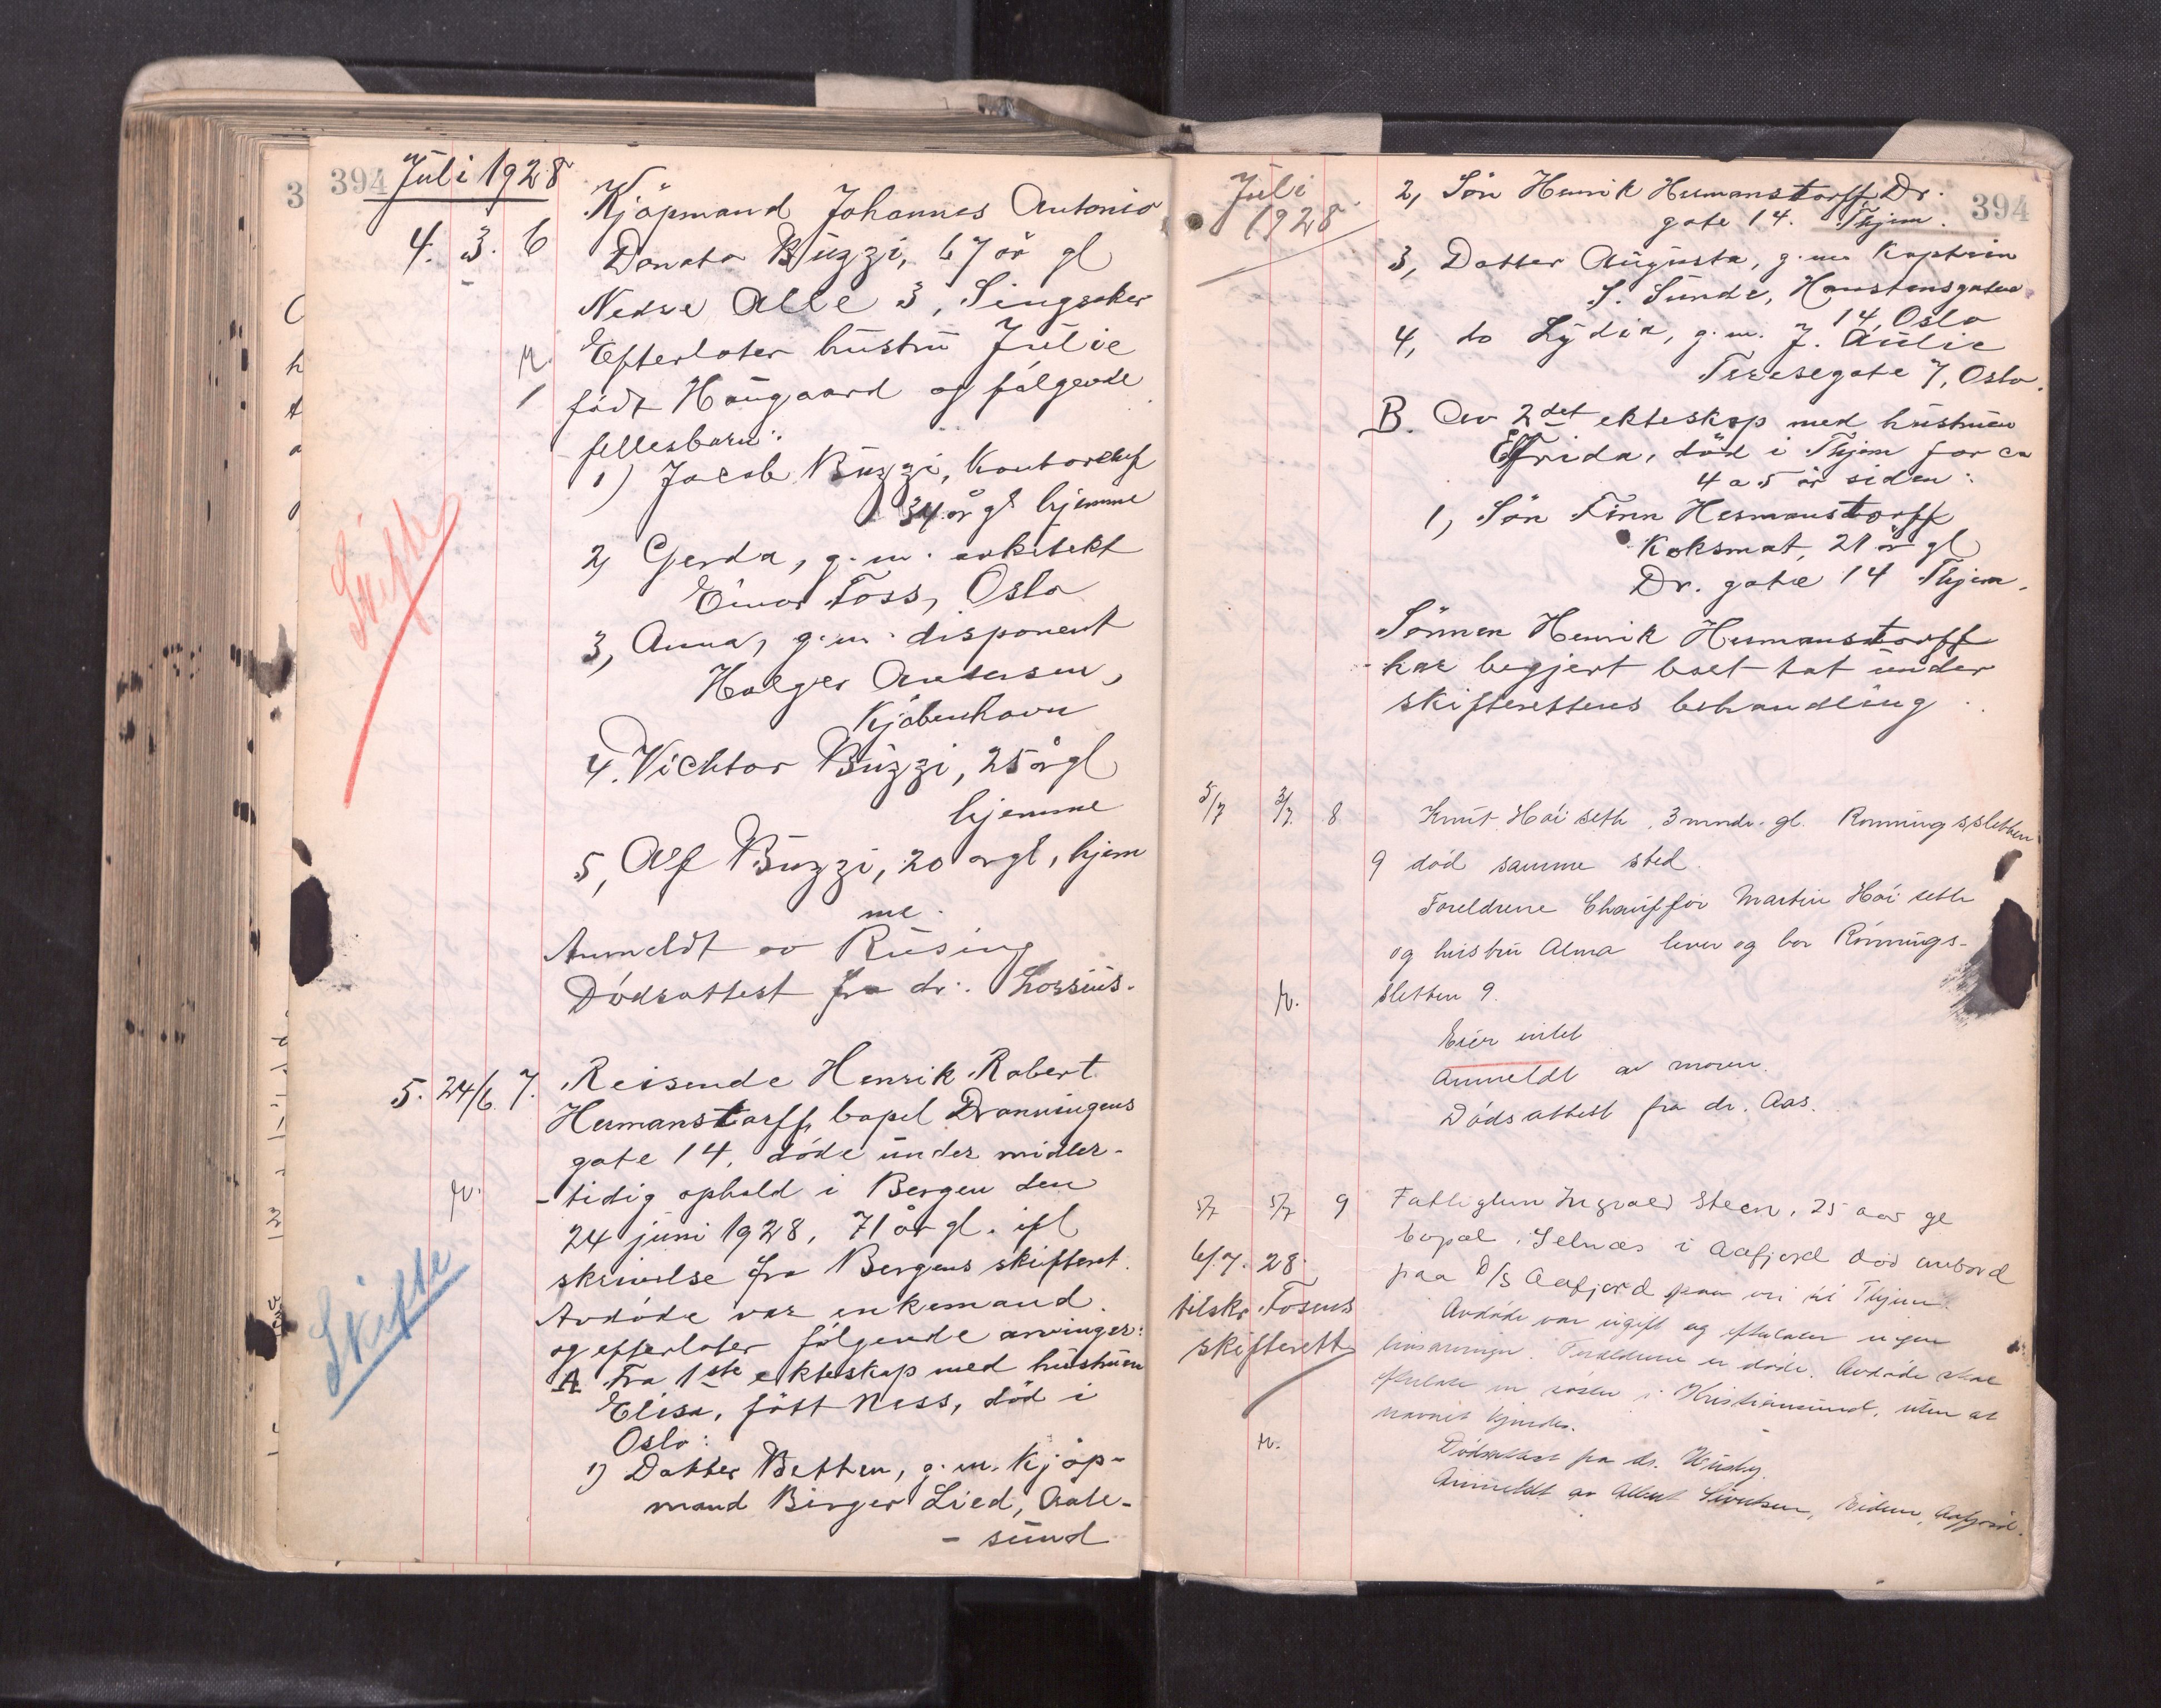 394 Juli 1928
4. 3. 6 Kjøpmand Johannes Antonio
Donato Buzzi, 67 år gl
Nedre Alle 3, Singsaker
Efterlater hustru Julie
født Haugaard og følgende
fellesbarn:
1) Jacob Buzzi, Kontorchef
34 år gl hjemme
2, Gerda, g.m. arkitekt
Einar Foss, Oslo
3, Anna, g.m. disponent
Holger Andersen,
Kjøbenhavn
4. Vichtor Buzzi, 25 år gl
hjemme
5, Alf Buzzi, 20 år gl, hjem
me.
Anmeldt av Rusing
Dødsattest fra dr. Lossius.
Skifte
5. 24/6 7. Reisende Henrik Robert
Hermanstorff, bopel Dronningens
gate 14, døde under midler-
-tidig ophold i Bergen den
24 juni 1928, 71 år gl. ifl
skrivelse fra Bergens skifteret.
Avdøde var enkemand.
og efterlater følgende arvinger:
A Fra 1ste ekteskap med hustruen
Elisa, født Ness, død i
Oslo:
1) Datter Betten, g.m. Kjøp-
mand Birger Lied, Aale-
- sund
Skifte
Juli
1928
394
2, Søn Henrik Hermanstorff, Dr.
gate 14. Thjem.
3, Datter Augusta, g.m. Kaptein
S. Sunde,
14, Oslo
4, do Lydia, g.m. J. Aulie
Teresegate 7, Oslo.
B. Av 2det ekteskap med hustruen
Effrida, død i Thjem for ca
4 a 5 år siden:
1, Søn Finn Hermanstorff
Koksmat, 21 år gl
Dr. gate 14 Thjem.
Sønnen Henrik Hermanstorff
har begjert boet tat under
skifterettens behandling.
5/7 3/7. 8 Knut Høiseth, 3 mndr. gl. Rønningsletten
9 død samme sted.
Foreldrene Chauffør Martin Høiseth
og hustru Alma lever og bor Rønnings-
sletten 9.
Eier intet
Anmeldt av moren.
Dødsattest fra dr. Aas.
5/7 5/7 9 Fattiglem Ingvald Steen, 25 aar gl
bopæl Selnæs i Aafjord død ombord
paa D/S Aafjord paa vei til Thjem.
6/7. 28.
tilskr. Fosens
skifterett
Avdøde var ugift og efterlater ingen
livsarvinger. Foreldrene er døde. Avdøde skal
efterlate en søster i Kristiansund, uten at
navnet kjendes.
Dødsattest fra dr.
Anmeldt av Albert Sivertsen, Eidem, Aafjord.